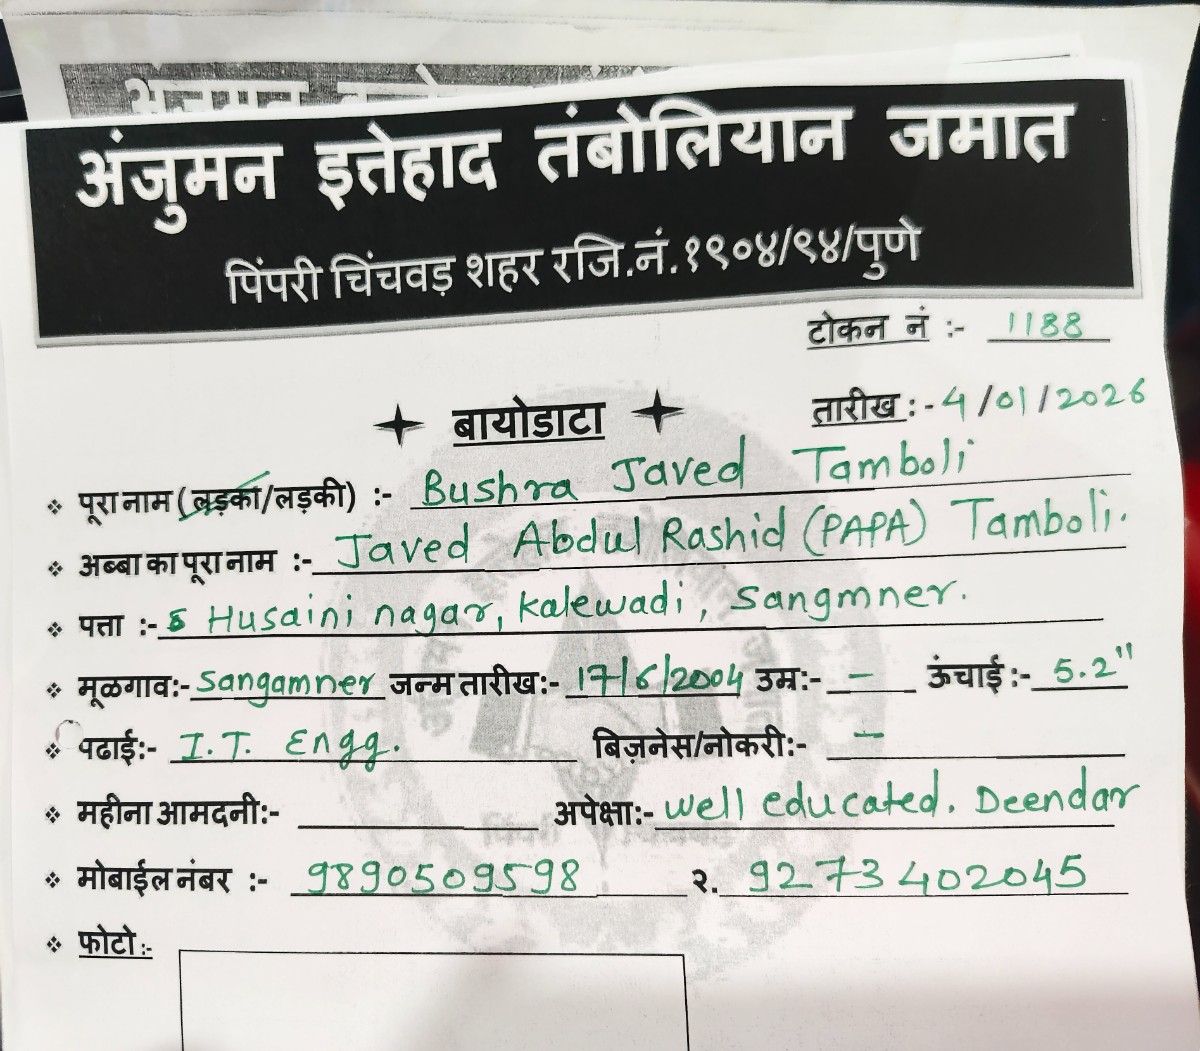 अंजुमन इत्तेहाद तंबोलियान जमात
पिंपरी चिंचवड़ शहर रजि.नं.१९०४/९४/पुणे
टोकन नं :- 1188
बायोडाटा
तारीख :- 4/01/2026
पूरा नाम (लड़का/लड़की) :- Bushra Javed Tamboli
अब्बा का पूरा नाम :- Javed Abdul Rashid (PAPA) Tamboli.
पत्ता :- Husaini nagar, Kalewadi, Sangmner.
मूळगाव:- Sangamner जन्म तारीख:- 17/6/2004 उम्र:- – ऊंचाई :- 5.2"
पढाई:- I.T. Engg. बिज़नेस/नोकरी:- –
महीना आमदनी:- अपेक्षा:- well educated. Deendar
मोबाईल नंबर :- 9890509598 २. 9273402045
फोटो :-